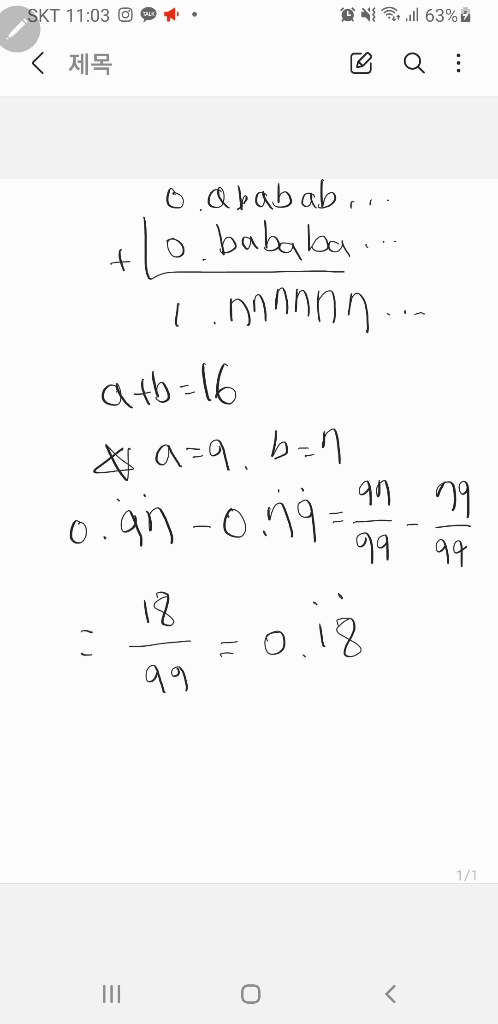 SKT 11:03 TALK 63%
제목
0.ababab...
+ 0.bababa...
1.777777...
a+b=16
☆ a=9. b=7
0.9̇7̇ - 0.7̇9̇ = 97/99 - 79/99
= 18/99 = 0.1̇8̇
1/1